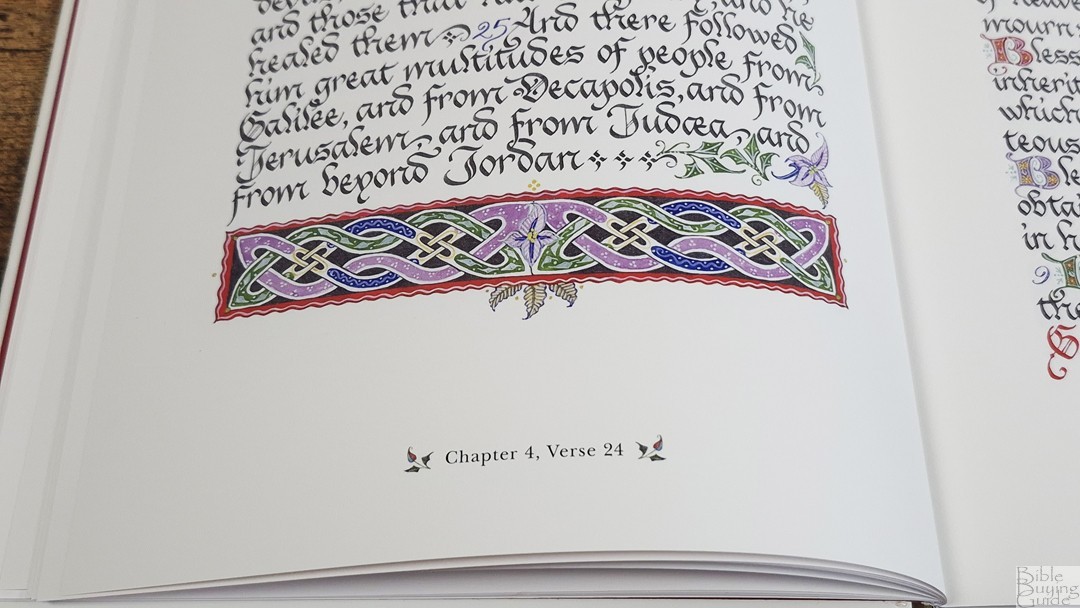 and those that
healed them 25 And there followed
him great multitudes of people from
Galilee, and from Decapolis, and from
Jerusalem, and from Judæa, and
from beyond Jordan
Chapter 4, Verse 24
of heave
mourn
Bless
inherit
which
teous
Ble
obta
in h
9
the
Bible
Buying
Guide